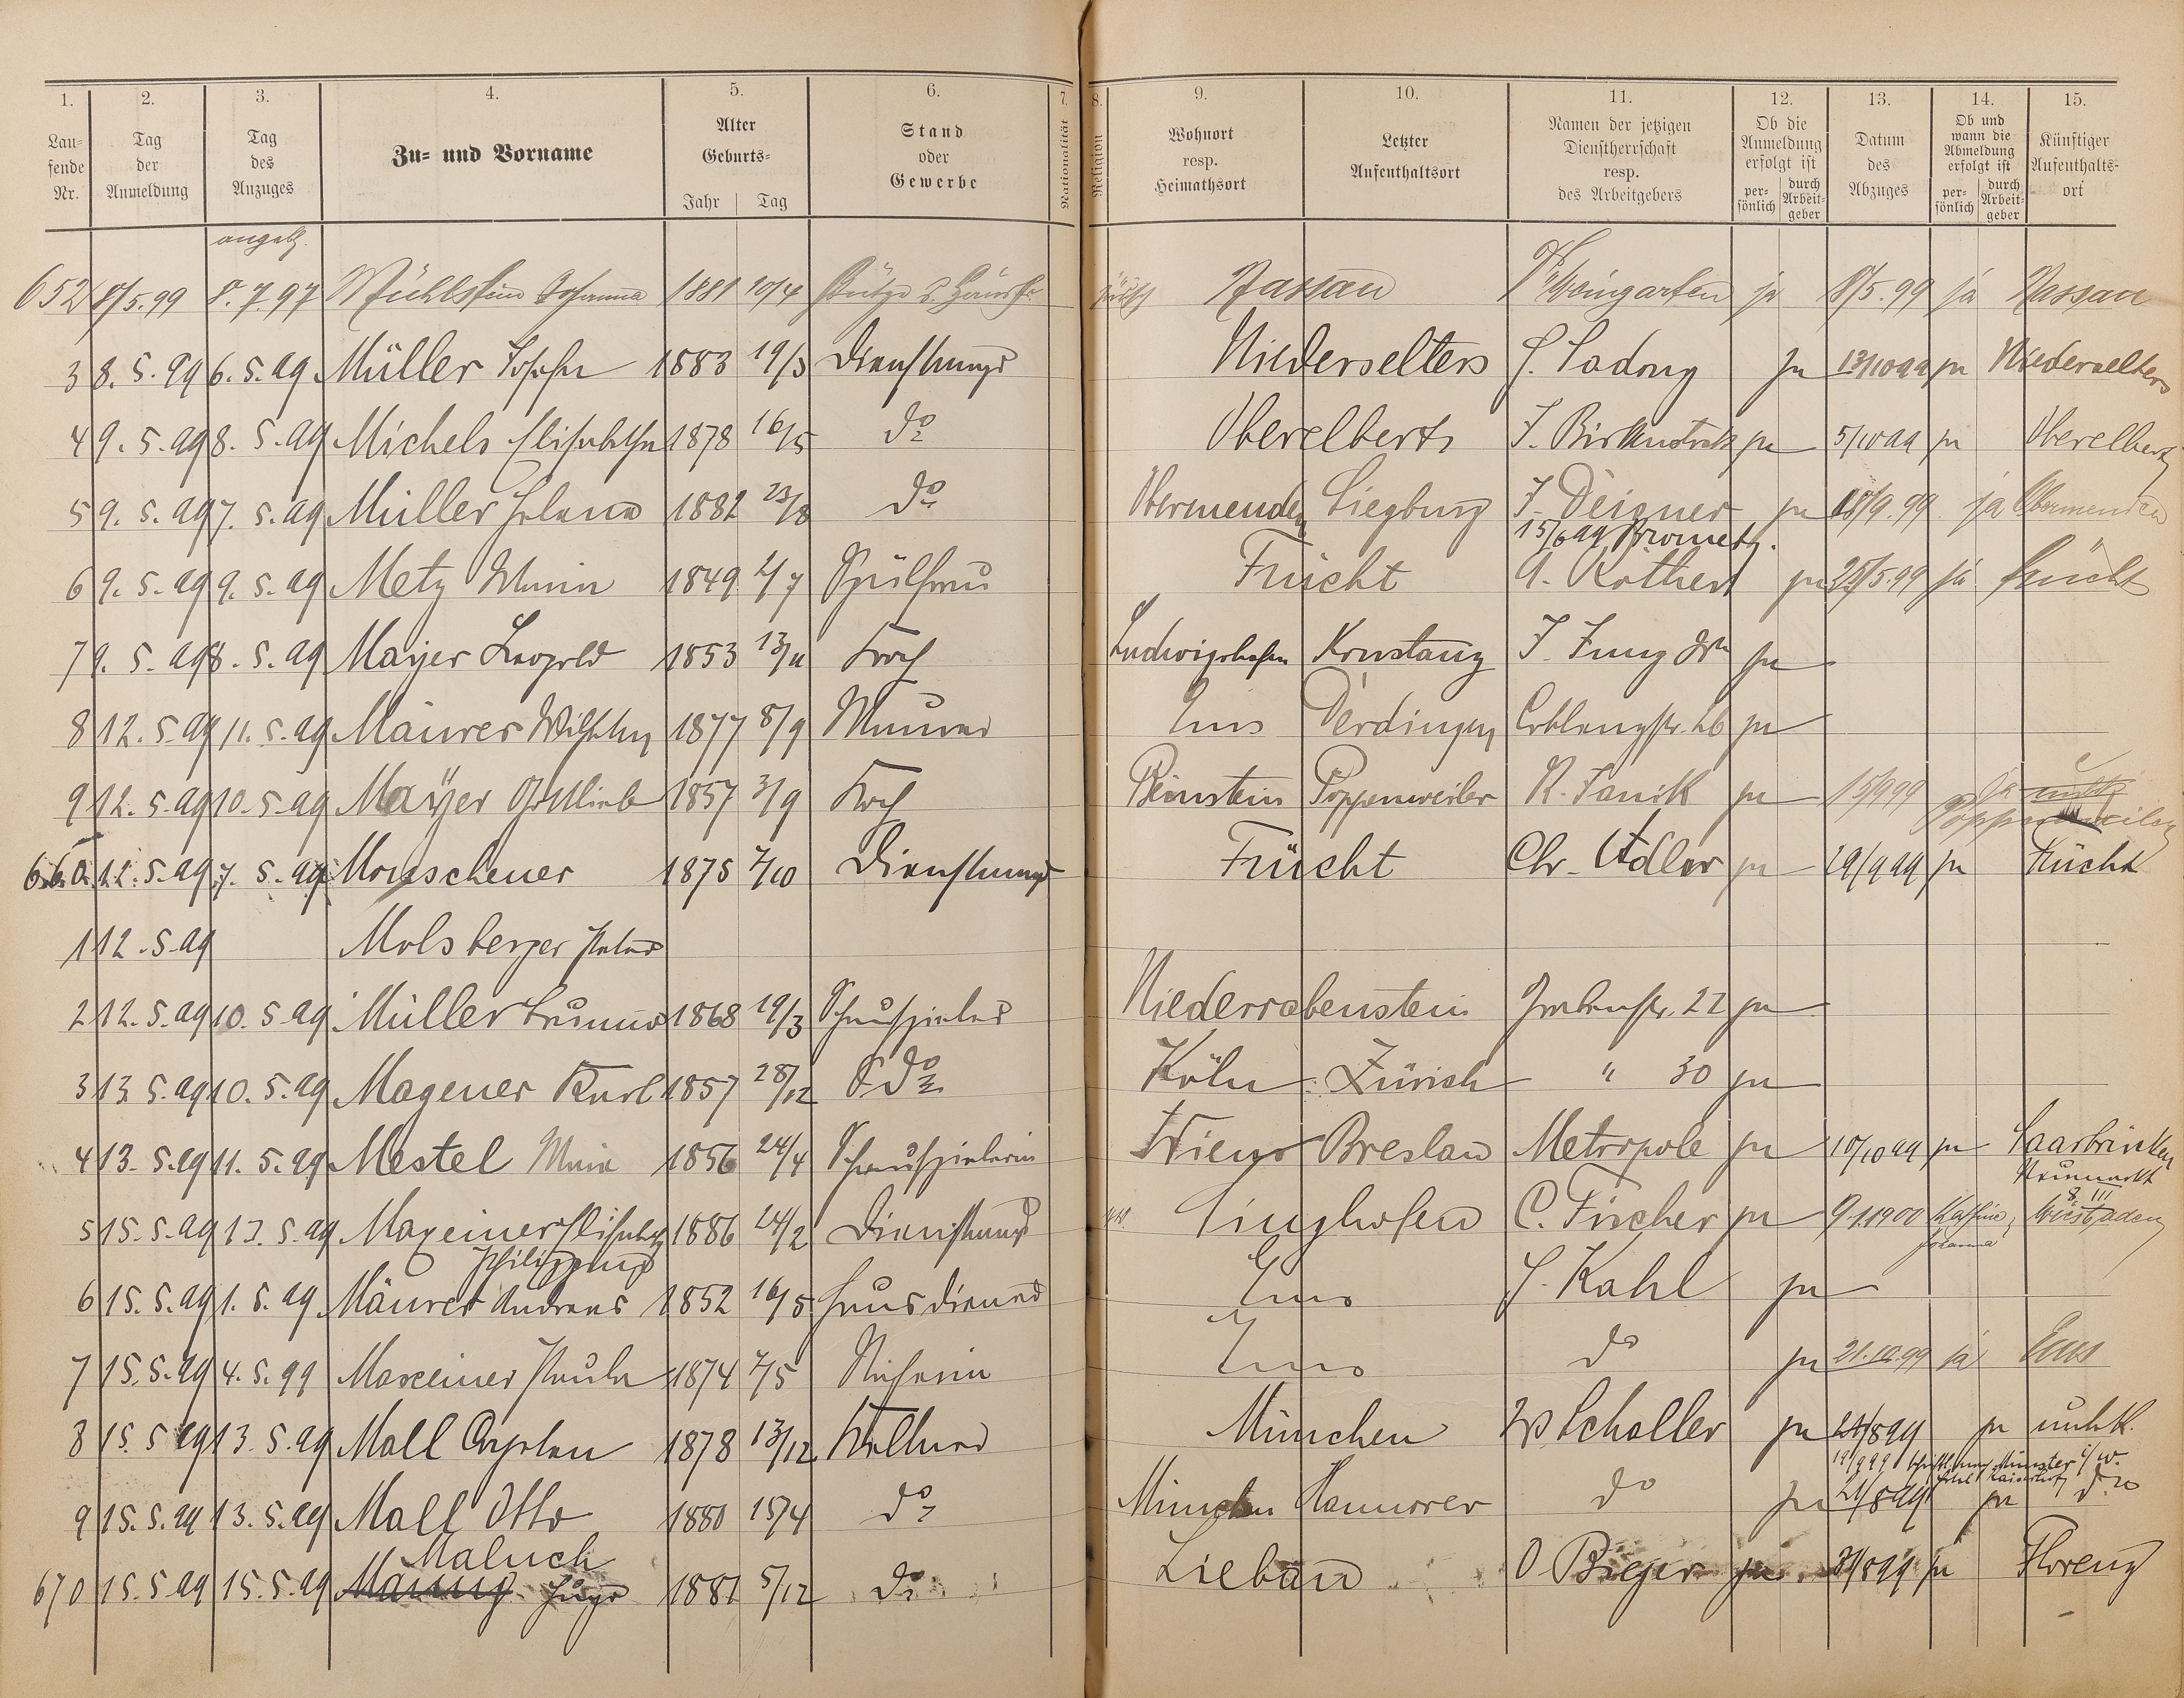 1. 2. 3. 4. 5. 6. 7. 8. 9. 10. 11. 12. 13. 14. 15.
Lau-
fende
Nr.
Tag
der
Anmeldung
Tag
des
Anzuges
Zu- und Vorname
Alter
Geburts-
Jahr Tag
Stand
oder
Gewerbe
Nationalität
Religion
Wohnort
resp.
Heimathsort
Letzter
Aufenthaltsort
Namen der jetzigen
Dienstherrschaft
resp.
des Arbeitgebers
Ob die
Anmeldung
erfolgt ist
per-
sönlich
durch
Arbeit-
geber
Datum
des
Abzuges
Ob und
wann die
Abmeldung
erfolgt ist
per-
sönlich
durch
Arbeit-
geber
Künftiger
Aufenthalts-
ort
652 8/5.99 8.7.97 Mühlstein Johanna 1881 10/4 Stütze d. Hausfr. Nassau Weingarten ja 8/5.99 ja Nassau
3 8.5.99 6.5.99 Müller Josefa 1883 19/3 Dienstmagd Niederselters ja 13/10 99 ja Niederselters
4 9.5.99 8.5.99 Michels Elisabetha 1878 16/5 do Oberelberts J. Birkenstock ja 5/10 99 ja Oberelbert
5 9.5.99 7.5.99 Müller Helena 1882 23/8 do Obermenden Siegburg J. Deigner ja 18/9.99 ja Obermenden
15/6 99
6 9.5.99 9.5.99 Metz Maria 1849 2/7 Spülfrau Frücht A. Rothert ja 25/5.99 ja Frücht
7 9.5.99 8.5.99 Mayer Leopold 1853 13/11 Koch Ludwigshafen Konstanz J. Jung ja
8 12.5.99 11.5.99 Mäurer Wilhelm 1877 8/9 Maurer Ems Derdingen Coblenzstr. 26 ja
9 12.5.99 10.5.99 Mayer Gottlieb 1857 3/9 Koch Beinstein Poppenweiler R. Tanik ja 15/9 99 ja
Poppenweiler
660 12.5.99 7.5.99 Monscheuer 1875 7/10 Dienstmagd Frücht Chr. Adler ja 19/9 99 ja Frücht
1 12.5.99 Molsberger Peter
2 12.5.99 10.5.99 Müller 1868 19/3 Schauspieler Niederrabenstein Grabenstr. 22 ja
3 13.5.99 10.5.99 Magener Karl 1857 28/12 do Köln Zürich " 30 ja
4 13.5.99 11.5.99 Mestel Maria 1856 24/4 Schauspielerin Wien Breslau Metropole ja 10/10 99 ja Saarbrücken
Neumarkt
8 III
5 15.5.99 13.5.99 Maxeiner Elisabeth 1886 24/2 Dienstmagd Singhofen C. Fischer ja 9.1.1900 Wiesbaden
Johanna
Philippine
6 15.5.99 1.5.99 Mäurer Andreas 1852 16/5 Hausdiener Ems H. Kahl ja
7 15.5.99 4.5.99 Maxeiner Paula 1874 7/5 Näherin Ems do ja 21.10.99 ja Ems
8 15.5.99 13.5.99 Mall 1878 13/12 Kellner München Schaller ja 24/8 99 ja unbk.
Münster i/W.
9 15.5.99 13.5.99 Mall Otto 1880 15/4 do München Hannover do ja 24/8 99 ja do
Maluch
670 15.5.99 15.5.99 Hugo 1881 5/12 do Liebau O Bieger ja 31/8 99 ja Florenz